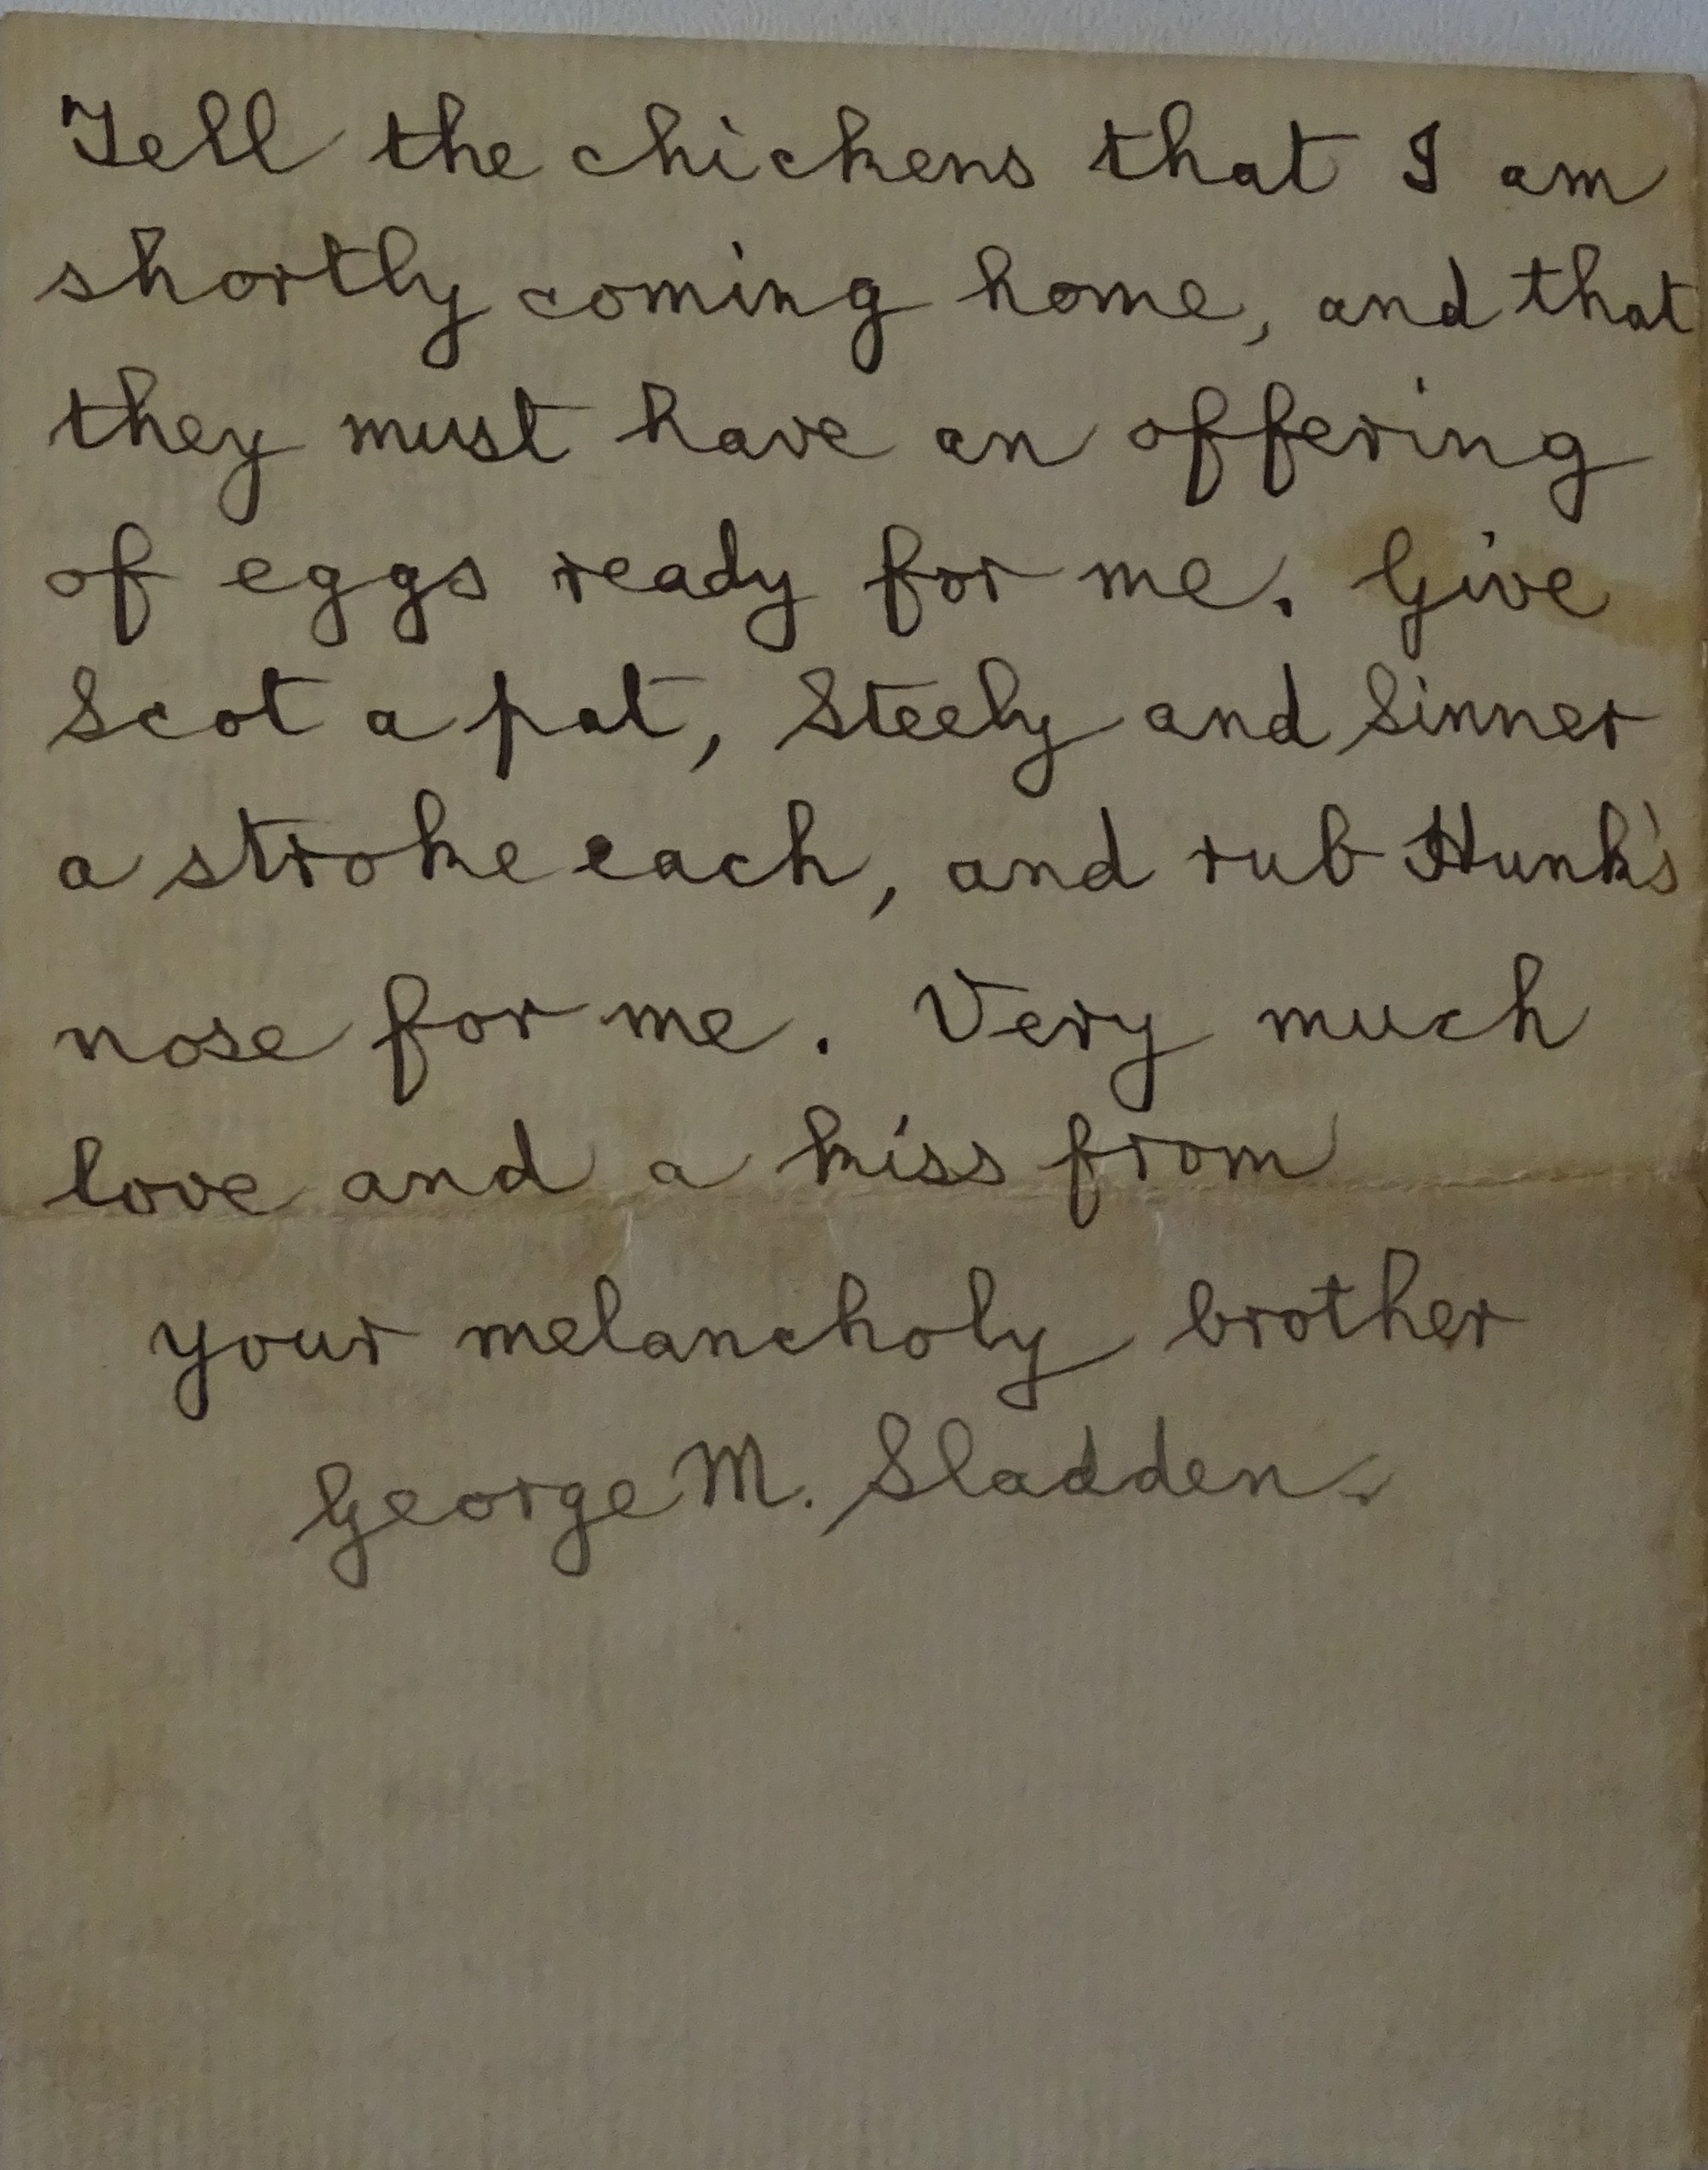 Tell the chickens that I am
shortly coming home, and that
they must have an offering
of eggs ready for me. Give
Scot a pat, Steely and Sinner
a stroke each, and rub Hunk's
nose for me. Very much
love and a kiss from
your melancholy brother
George M. Sladden.